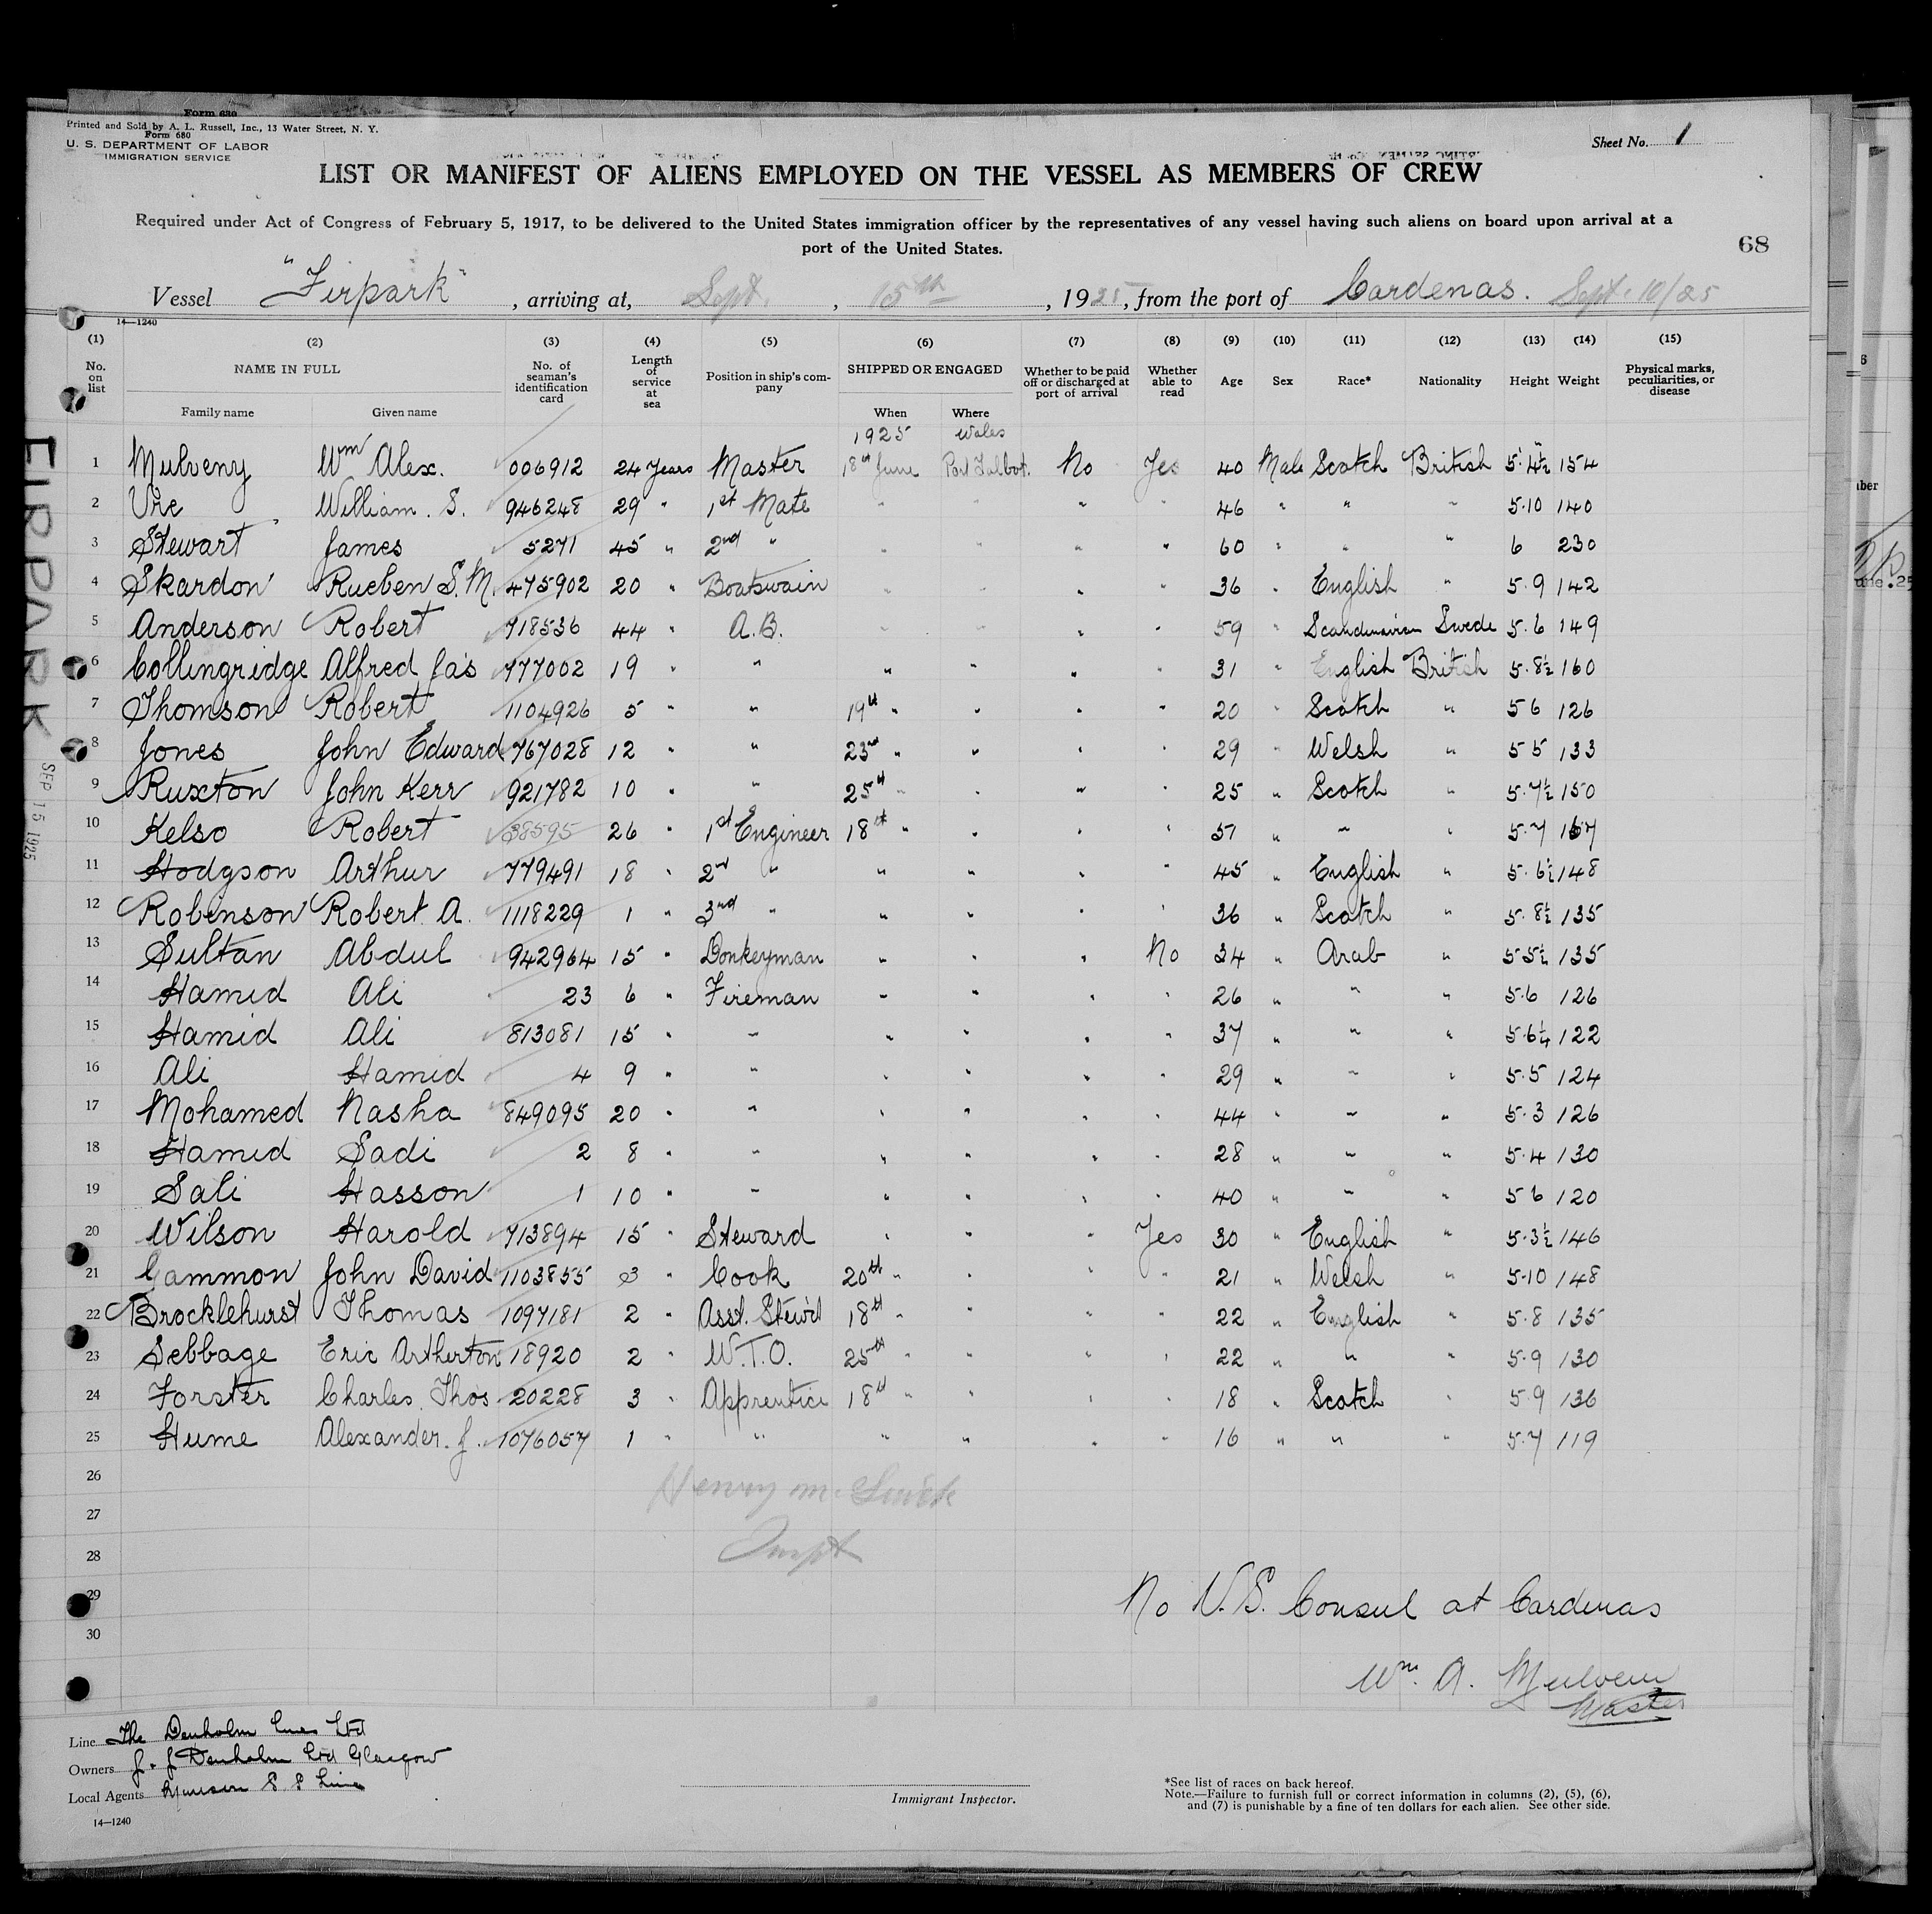 Form 630
Printed and Sold by A. L. Russell, Inc., 13 Water Street, N. Y.
Form 680
U. S. DEPARTMENT OF LABOR
IMMIGRATION SERVICE
Sheet No. 1
LIST OR MANIFEST OF ALIENS EMPLOYED ON THE VESSEL AS MEMBERS OF CREW
Required under Act of Congress of February 5, 1917, to be delivered to the United States immigration officer by the representatives of any vessel having such aliens on board upon arrival at a
port of the United States.
68
Vessel "Firpark", arriving at, Sept. , 15th, 1925, from the port of Cardenas. Sept. 10/25
14—1240
(1) (2) (3) (4) (5) (6) (7) (8) (9) (10) (11) (12) (13) (14) (15)
No. on list NAME IN FULL Family name Given name No. of seaman's identification card Length of service at sea Position in ship's company SHIPPED OR ENGAGED When Where Whether to be paid off or discharged at port of arrival Whether able to read Age Sex Race* Nationality Height Weight Physical marks, peculiarities, or disease
1925 Wales
1 Mulveny Wm Alex. 006912 24 Years Master 18th June Port Talbot. No Yes 40 Male Scotch British 5' 4½" 154
2 Vie William. S. 946248 29 " 1st Mate " " " " 46 " " " 5·10 140
3 Stewart James 5271 45 " 2nd " " " " " 60 " " " 6 230
4 Skardon Rueben S. M. 475902 20 " Boatswain " " " " 36 " English " 5·9 142
5 Anderson Robert 918536 44 " A.B. " " " " 59 " Scandinavian Swede 5·6 149
6 Collingridge Alfred Jas 777002 19 " " " " " " 31 " English British 5·8½ 160
7 Thomson Robert 1104926 5 " " 19th " " " " 20 " Scotch " 5 6 126
8 Jones John Edward 767028 12 " " 23rd " " " " 29 " Welsh " 5 5 133
9 Ruxton John Kerr 921782 10 " " 25th " " " " 25 " Scotch " 5·7½ 150
10 Kelso Robert 38595 26 " 1st Engineer 18th " " " " 51 " " " 5·7 167
11 Hodgson Arthur 779491 18 " 2nd " " " " " 45 " English " 5·6½ 148
12 Robinson Robert A. 1118229 1 " 3rd " " " " " 36 " Scotch " 5·8½ 135
13 Sultan Abdul 942964 15 " Donkeyman " " " No 34 " Arab " 5 5½ 135
14 Hamid Ali 23 6 " Fireman " " " " 26 " " " 5·6 126
15 Hamid Ali 813081 15 " " " " " " 37 " " " 5·6¼ 122
16 Ali Hamid 4 9 " " " " " " 29 " " " 5·5 124
17 Mohamed Nasha 849095 20 " " " " " " 44 " " " 5·3 126
18 Hamid Sadi 2 8 " " " " " " 28 " " " 5·4 130
19 Sali Hasson 1 10 " " " " " " 40 " " " 5 6 120
20 Wilson Harold 713894 15 " Steward " " " Yes 30 " English " 5·3½ 146
21 Gammon John David 1103855 3 " Cook 20th " " " " 21 " Welsh " 5·10 148
22 Brocklehurst Thomas 1097181 2 " Asst. Stew'd 18th " " " " 22 " English " 5·8 135
23 Sebbage Eric Artherton 18920 2 " W.T.O. 25th " " " " 22 " " " 5·9 130
24 Forster Charles. Thos 20228 3 " Apprentice 18th " " " " 18 " Scotch " 5·9 136
25 Hume Alexander. J. 1076057 1 " " " " " " 16 " " " 5·7 119
26
27
28
29
30
Henry M.
Inspt
No U.S. Consul at Cardenas
Wm. A. Mulveny
Master
FIRPARK
SEP 15 1925
Line The Denholm Lines Ltd
Owners J. & J Denholm Ltd Glasgow
Local Agents Munson S S Line
Immigrant Inspector.
*See list of races on back hereof.
Note.—Failure to furnish full or correct information in columns (2), (5), (6),
and (7) is punishable by a fine of ten dollars for each alien. See other side.
14—1240